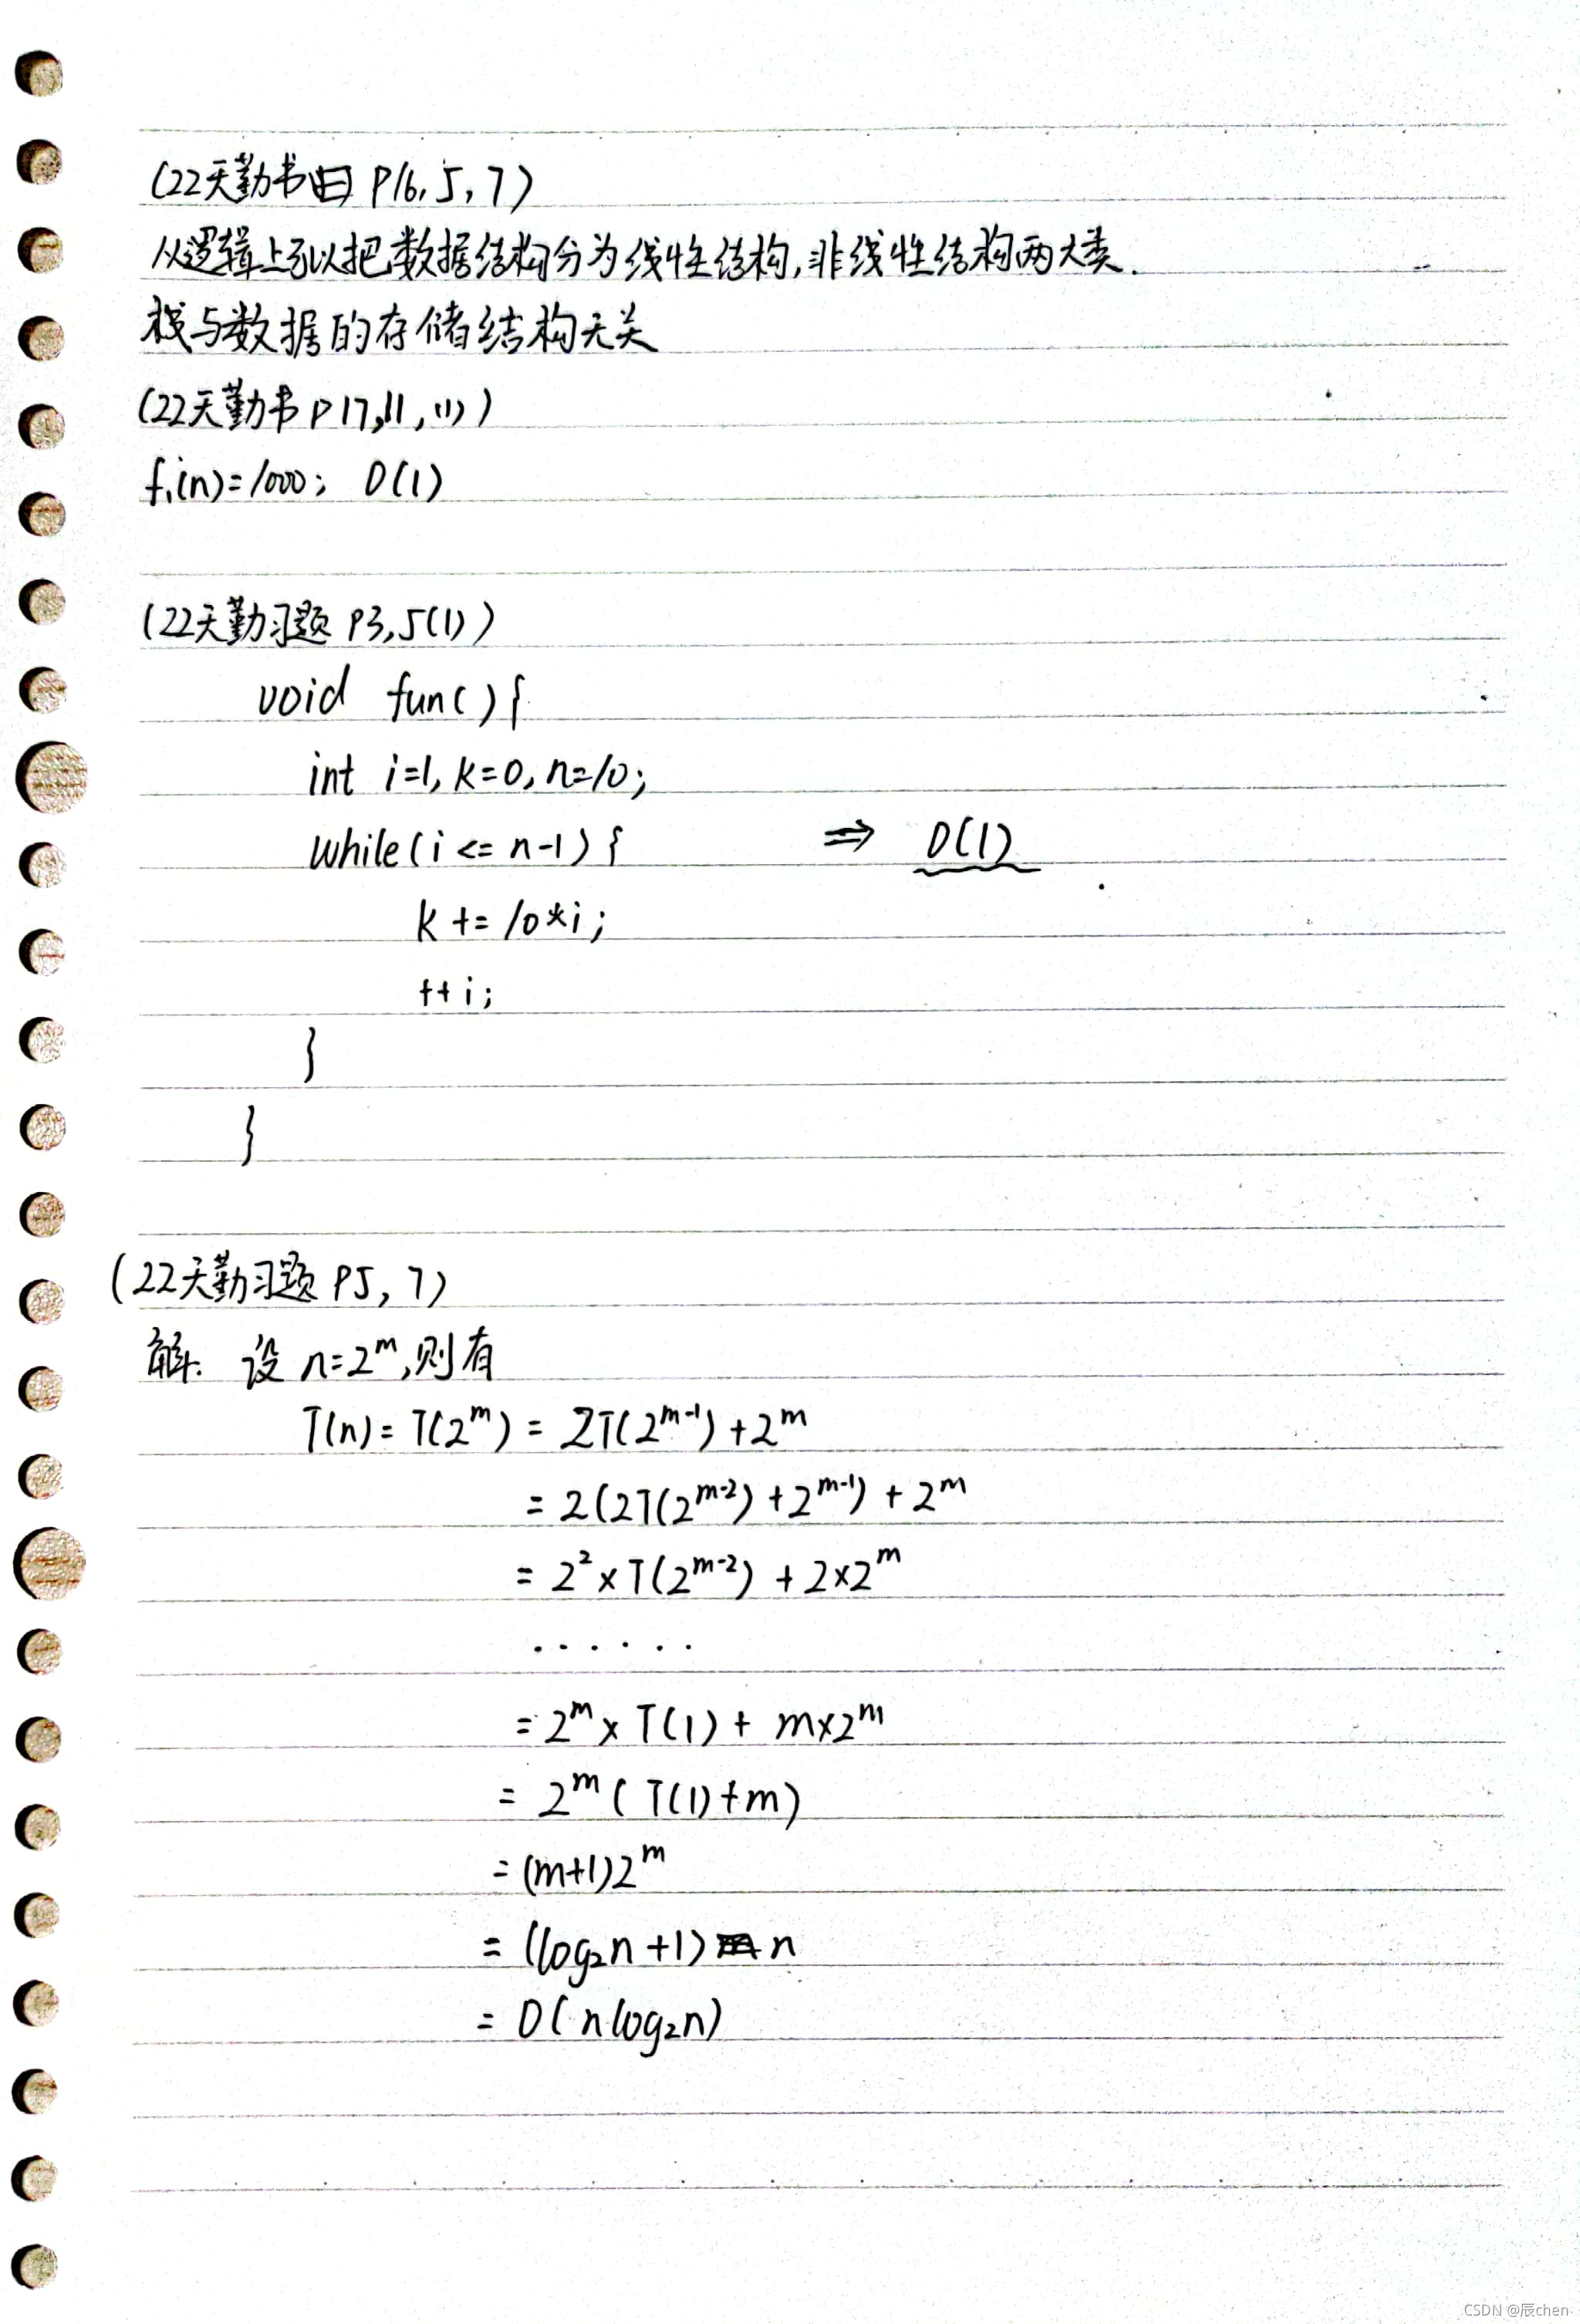 (22天勤书 P16, 5, 7)
从逻辑上可以把数据结构分为线性结构,非线性结构两大类.
栈与数据的存储结构无关
(22天勤书 P17,11,(1))
f₁(n)=1000; O(1)
(22天勤习题 P3,5(1))
void fun(){
int i=1, k=0, n=10;
while(i <= n-1){ ⇒ O(1)
k += 10*i;
++i;
}
}
(22天勤习题 P5, 7)
解. 设 n=2^m,则有
T(n)= T(2^m) = 2T(2^(m-1)) + 2^m
= 2(2T(2^(m-2)) + 2^(m-1)) + 2^m
= 2² × T(2^(m-2)) + 2×2^m
······
= 2^m × T(1) + m×2^m
= 2^m ( T(1)+m)
= (m+1)2^m
= (log₂n +1) n
= O(nlog₂n)
CSDN @辰chen